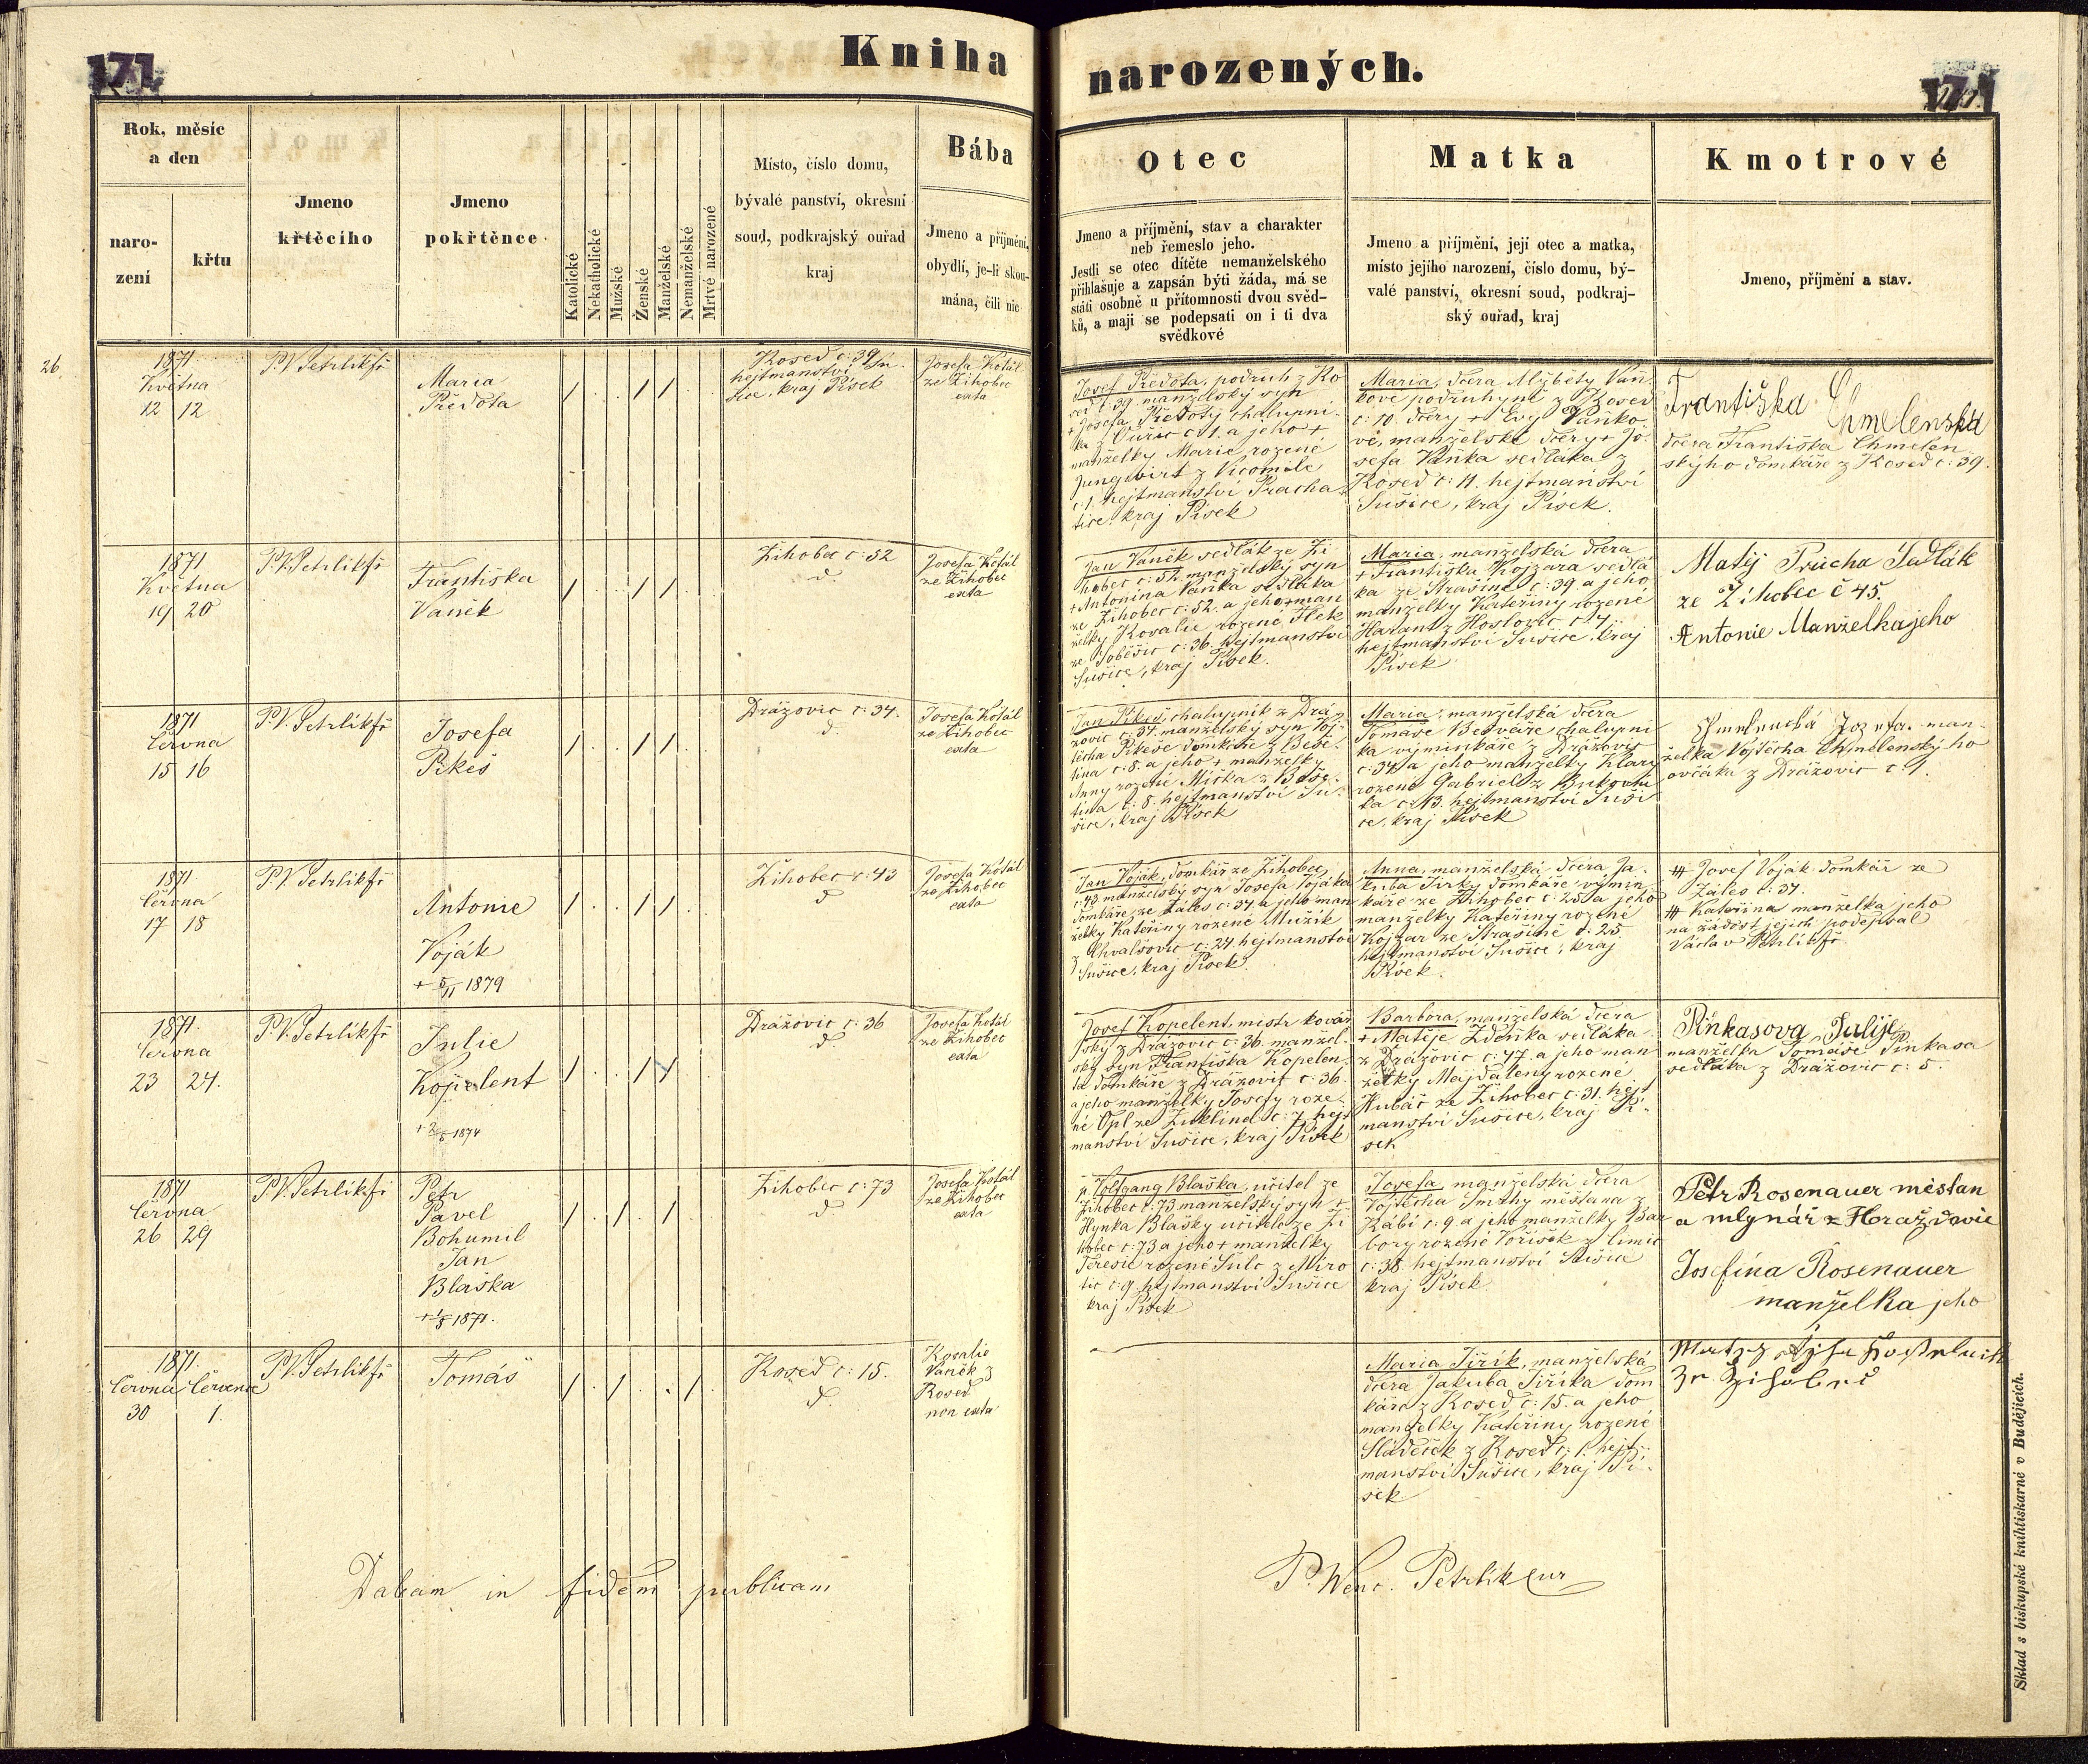 171
Kniha
narozených.
171
Rok, měsíc
a den
naro-
zení
křtu
Jmeno
křtěcího
Jmeno
pokřtěnce
Katolické
Nekatholické
Mužské
Ženské
Manželské
Nemanželské
Mrtvé narozené
Místo, číslo domu,
bývalé panství, okresní
soud, podkrajský ouřad
kraj
Bába
Jmeno a příjmění,
obydlí, je-li skou-
mána, čili nic
Otec
Jmeno a příjmění, stav a charakter
neb řemeslo jeho.
Jestli se otec dítěte nemanželského
přihlašuje a zapsán býti žádá, má se
státi osobně u přítomnosti dvou svěd-
ků, a mají se podepsati on i ti dva
svědkové
Matka
Jmeno a příjmění, její otec a matka,
místo jejího narození, číslo domu, bý-
valé panství, okresní soud, podkraj-
ský ouřad, kraj
Kmotrové
Jmeno, příjmění a stav.
26.
1871.
Května
12 12
P. V. Petrlík fř
Maria
Předota
Kosed č: 39
hejtmanství Su-
šice, kraj Písek
Josefa Kotál
ze Žihobec
exta
Josef Předota, podruh z Ko
sed č: 39. manželský syn
+ Josefa Předoty chalupní-
ka z č: 1. a jeho +
manželky Marie rozené
Jungvirt z
č: 1. hejtmanství Pracha-
tice, kraj Písek
Maria, dcera Alžběty Vaň-
kové podruhyně z Kosed
č: 10. dcery + Evy Vaňko-
vé, manželské dcery + Jo-
sefa Vaňka sedláka z
Kosed č: 11. hejtmanství
Sušice, kraj Písek.
Františka Chmelenská
dcera Františka Chmelen
ského domkáře z Kosed č: 39.
1871
Května
19 20
P. V. Petrlík fř
Františka
Vaněk
Žihobec č: 52
d.
Josefa Kotál
ze Žihobec
exta
Jan Vaněk sedlák ze Ži
hobec č: 52. manželský syn
+ Antonína Vaňka sedláka
ze Žihobec č: 52. a jeho + man
želky Rosalie rozené Flek
ze Soběšic č: 36. hejtmanství
Sušice, kraj Písek.
Maria, manželská dcera
+ Františka Kojzara sedlá
ka ze Strašína č: 39. a jeho
manželky Kateřiny rozené
Harant z Hoslovic č: 4.
hejtmanství Sušice, kraj
Písek
Matěj Průcha Sadlák
ze Žihobec č 45.
Antonie Manželka jeho
1871
Června
15 16
P. V. Petrlík fř
Josefa
Pikeš
Drážovic č: 34.
d.
Josefa Kotál
ze Žihobec
exta
Jan Pikeš, chalupník z Drá-
žovic č: 34. manželský syn Voj-
těcha Pikeše domkáře z Beše-
tína č: 8. a jeho + manželky
Anny rozené Míčka z Beše-
tína č: 8. hejtmanství Su-
šice, kraj Písek
Maria, manželská dcera
Tomáše Bednáře, chalupní
ka výminkáře z Drážovic
č: 34. a jeho manželky Klary
rozené Gabriel z Bukovní
ka č: 13. hejtmanství Suši
ce, kraj Písek
Chmelenská Jozefa. man-
želka Vojtěcha Chmelenského
ovčáka z Drážovic č: 1.
1871.
Června
17 18
P. V. Petrlík fř
Antonie
Voják
+ 5/11 1879
Žihobec č: 43
d
Josefa Kotál
ze Žihobec
exta
Jan Voják, domkář ze Žihobec
č: 43 manželský syn Josefa Vojáka
domkáře ze Záles č: 34. a jeho man
želky Kateřiny rozené Mužík
z Chvalšovic č: 24. hejtmanství
Sušice, kraj Písek.
Anna, manželská dcera Ja-
kuba Jirky domkáře výmin
káře ze Žihobec č: 25. a jeho
manželky Kateřiny rozené
Kojzar ze Strašíně č: 25.
hejtmanství Sušice, kraj
Písek.
⧻ Josef Voják domkář ze
Záles č: 34.
⧻ Kateřina manželka jeho
na žádost jejich podepsal
Václav Petrlík fř.
1871.
Června
23 24.
P. V. Petrlík fř
Julie
Kopelent
+ 2/5 1874
Drážovic č: 36
d
Josefa Kotál
ze Žihobec
exta
Josef Kopelent, mistr kovář
ský z Drážovic č: 36. manžel-
ský syn Františka Kopelen-
ta domkáře z Drážovic č: 36.
a jeho manželky Josefy roze-
né Opl ze Zuklína č: 7. hejt
manství Sušice, kraj Písek
Barbora, manželská dcera
+ Matěje Zdeňka sedláka
z Drážovic č: 47. a jeho man
želky Majdaleny rozené
Kubát ze Žihobec č: 31. hejt
manství Sušice, kraj Pí-
sek
Pinkasova Julije
manželka Tomáše Pinkasa
sedláka z Drážovic č: 5.
1871
Června
26 29
P. V. Petrlík fř
Petr
Pavel
Bohumil
Jan
Blaška
+ 1/8 1871.
Žihobec č: 73
d
Josefa Kotál
ze Žihobec
exta
p. Volfgang Blaška, učitel ze
Žihobec č: 73 manželský syn +
Hynka Blašky učitele ze Ži
hobec č: 73 a jeho + manželky
Teresie rozené Šulc z Miro
tic č: 9. hejtmanství Sušice
kraj Písek
Josefa manželská dcera
Vojtěcha Smrhy měštana z
Rábí č: 9. a jeho manželky Bar
bory rozené Voříšek z Čímic
č: 38. hejtmanství Sušice
kraj Písek.
Petr Rosenauer městan
a mlynář z Horažďovic
Josefína Rosenauer
manželka jeho
1871.
Června Července
30 1.
P. V. Petrlík fř
Tomáš
Kosed č: 15.
d.
Rosalie
Vaněk z
Kosed
non exta
Maria Jiřík, manželská
dcera Jakuba Jiříka dom
káře z Kosed č: 15. a jeho
manželky Kateřiny rozené
Sládeček z Kosed č: 1. hejt-
manství Sušice, kraj Pí-
sek
Dabam in fidem publicam
P. Wenc. Petrlik Cur
Sklad s biskupské knihtiskarné v Budějicích.